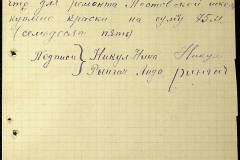 что для ремонта Постовской школ
куплено краски на суму 75 м.
(семодесят пять)
Подписи } Никул Нина Никул
Рынгач Лида Рынгач